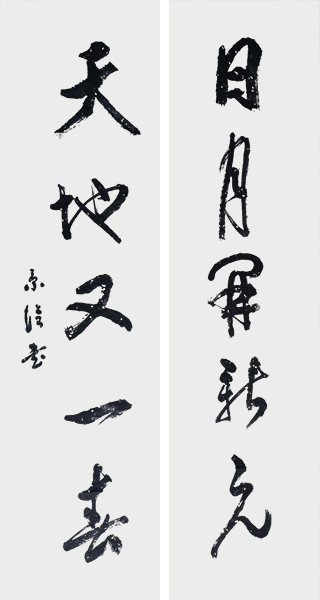 日月開新元
天地又一春